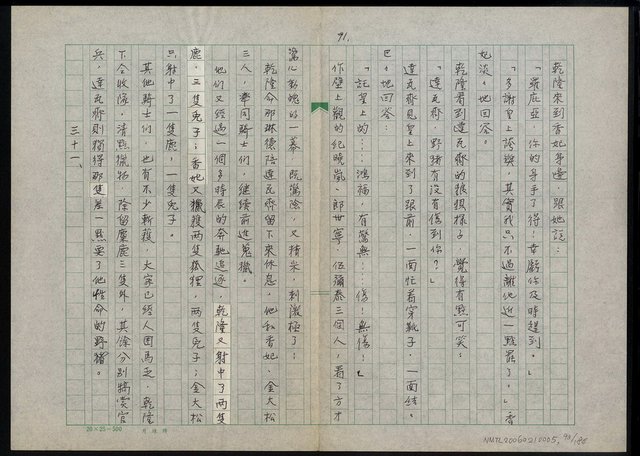 91.
乾隆來到香妃身邊，跟她說：
「羅庇亞，你的身手了得！幸虧你及時趕到。」
「多謝皇上誇獎，其實我只不過離他近一點罷了。」香
妃淡淡地回答。
乾隆看到達瓦齊的狼狽樣子，覺得有點可笑：
「達瓦齊，野豬有沒有傷到你？」
達瓦齊見皇上來到了跟前，一面忙着穿靴子，一面結結
巴巴地回答：
「託皇上的……鴻福，有驚無……傷！無傷！」
作壁上觀的紀曉嵐、郎世寧、伍彌泰三個人，看了方才
驚心動魄的一幕，既驚險，又精采，刺激極了！
乾隆命那琳德陪達瓦齊留下來休息，他和香妃、金大松
三人，率同騎士們，繼續前進蒐獵。
他們又經過一個多時辰的奔馳追逐，乾隆又射中了兩隻
鹿，三隻兔子；香妃又獲兩隻狐狸，兩隻兔子；金大松
只射中了一隻鹿，一隻兔子。
其他騎士們，也有不少斬獲，大家已經人困馬乏，乾隆
下令收隊，清點獵物，除留麋鹿三隻外，其餘分別犒賞官
兵，達瓦齊則獨得那隻差一點要了他性命的野豬。
三十一、
20×25=500
NMTL20060210005, 93/186